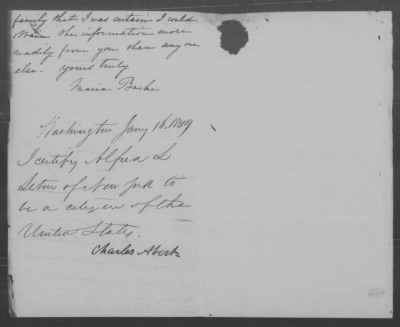 family that I was certain I could
obtain the information more
readily from you than any one
else. yours truly
Maria
Washington Jany 16. 1849
I certify Alfred L
Seton of New York to
be a citizen of the
United States.
Charles Abert